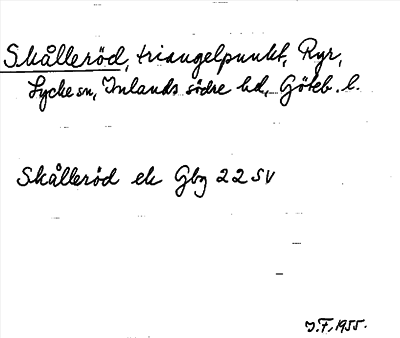 Skålleröd, triangelpunkt, Ryr,
Lycke sn, Inlands södre hd, Göteb. l.
Skålleröd ek Gbg 22 SV
J.F. 1955.